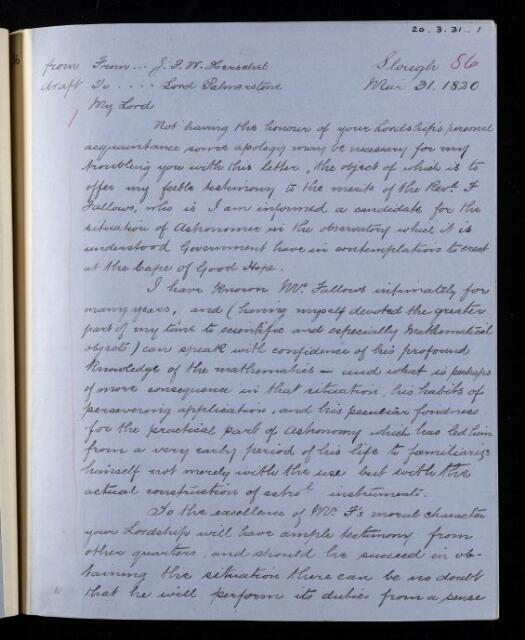 20.3.31.1
from From ... J. F. W. Herschel Slough 56
draft To .... Lord Palmerstone Mar 31. 1820
My Lord
Not having the honour of your Lordship's personal
acquaintance some apology may be necessary for my
troubling you with this letter, the object of which is to
offer my feeble testimony to the merits of the Revd. F
Fallows, who is I am informed a candidate for the
situation of Astronomer in the observatory which it is
understood Government have in contemplation to erect
at the Cape of Good Hope.
I have known Mr. Fallows intimately for
many years, and (having myself devoted the greater
part of my time to scientific and especially Mathematical
objects) can speak with confidence of his profound
knowledge of the mathematics — and what is perhaps
of more consequence in that situation, his habits of
persevering application, and his peculiar fondness
for the practical part of Astronomy which has led him
from a very early period of his life to familiarize
himself not merely with the use but with the
actual construction of astrol. instruments.
To the excellence of Mr F's moral character
your Lordship will have ample testimony from
other quarters, and should he succeed in ob-
taining the situation there can be no doubt
that he will perform its duties from a sense